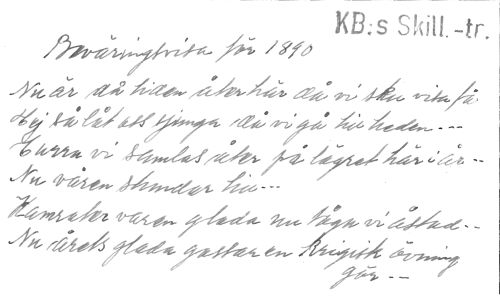 KB:s Skill.-tr.
Beväringsvisa för 1890
Nu är då tiden åter här då vi sku visa få
Hej så låt oss sjunga då vi gå till heden ---
Hurra vi samlas åter på lägret här i år --
Nu våren stundar till ---
Kamrater varen glada nu tåga vi åstad --
Nu årets glada gossar en krigisk övning
gör --